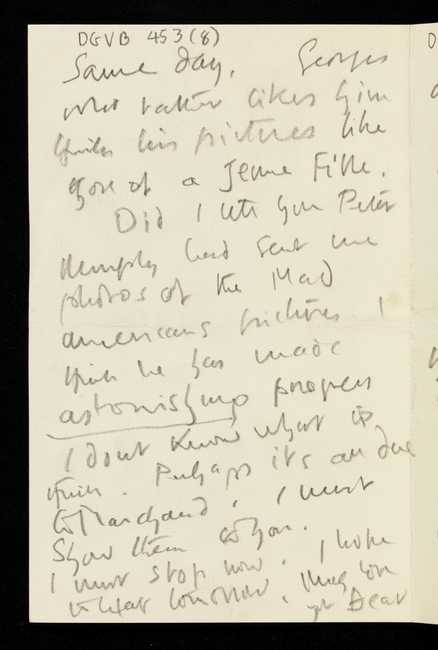 DGVB 453(8)
Same day. Georges
who rather likes him
thinks his pictures like
those of a Jeune Fille.
Did I tell you Peter
Humphry had sent me
photos of the Mad
americans pictures. I
think he has made
astonishing progress
I dont know what to
think. Perhaps its all due
to Marchand. I must
show them to you.
I must stop now. I hope
to hear tomorrow. Much love
yr Bear